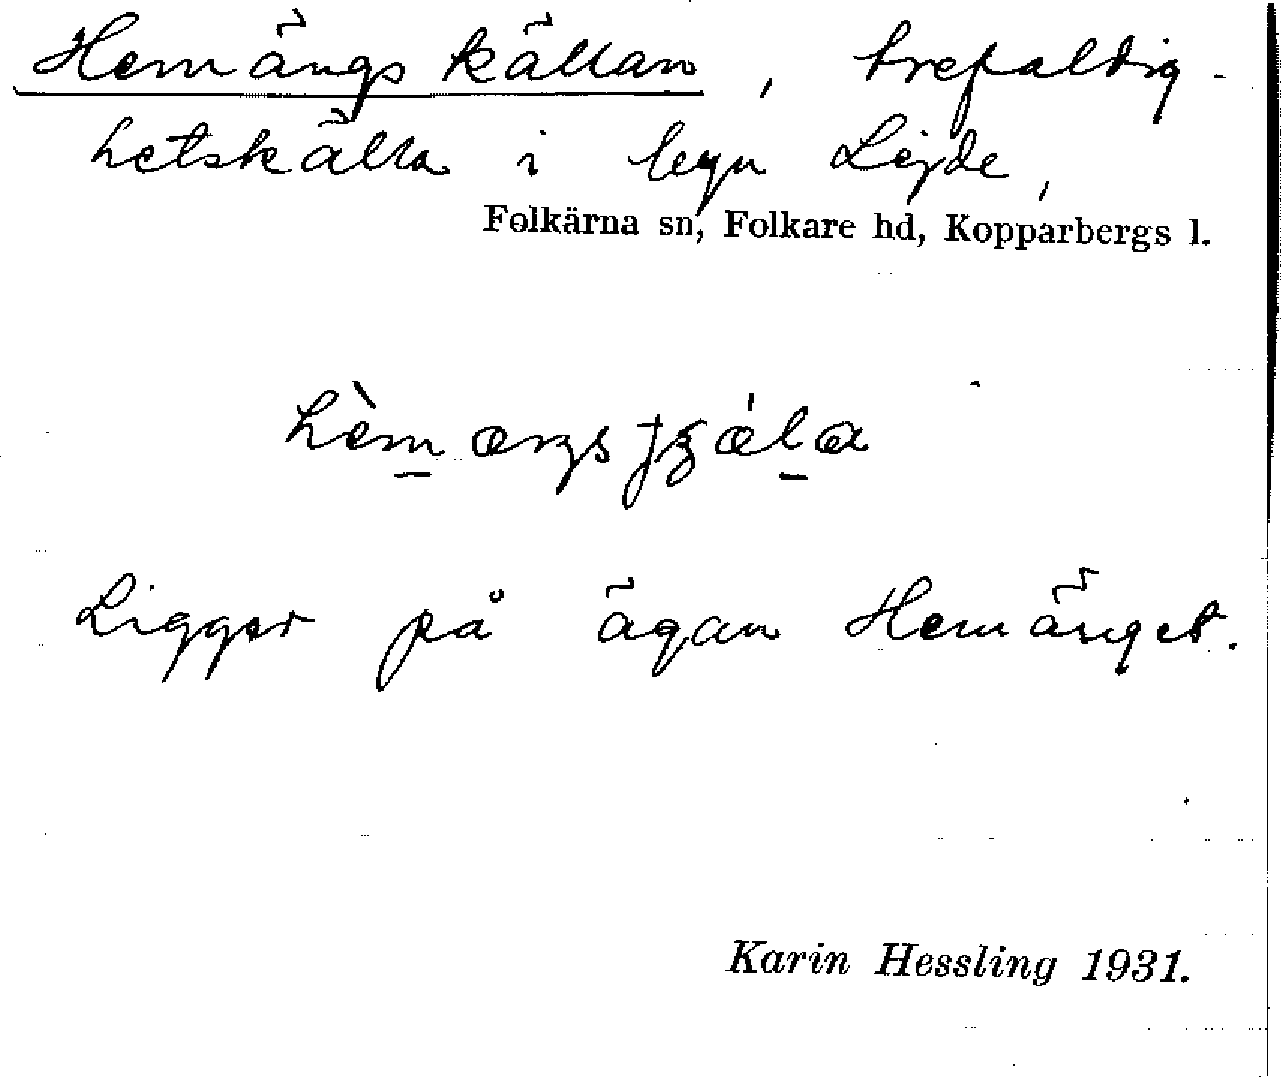 Hemängskällan, trefaldig-
hetskälla i byn Lejde,
Folkärna sn, Folkare hd, Kopparbergs l.
Ligger på ägan Hemänget.
Karin Hessling 1931.